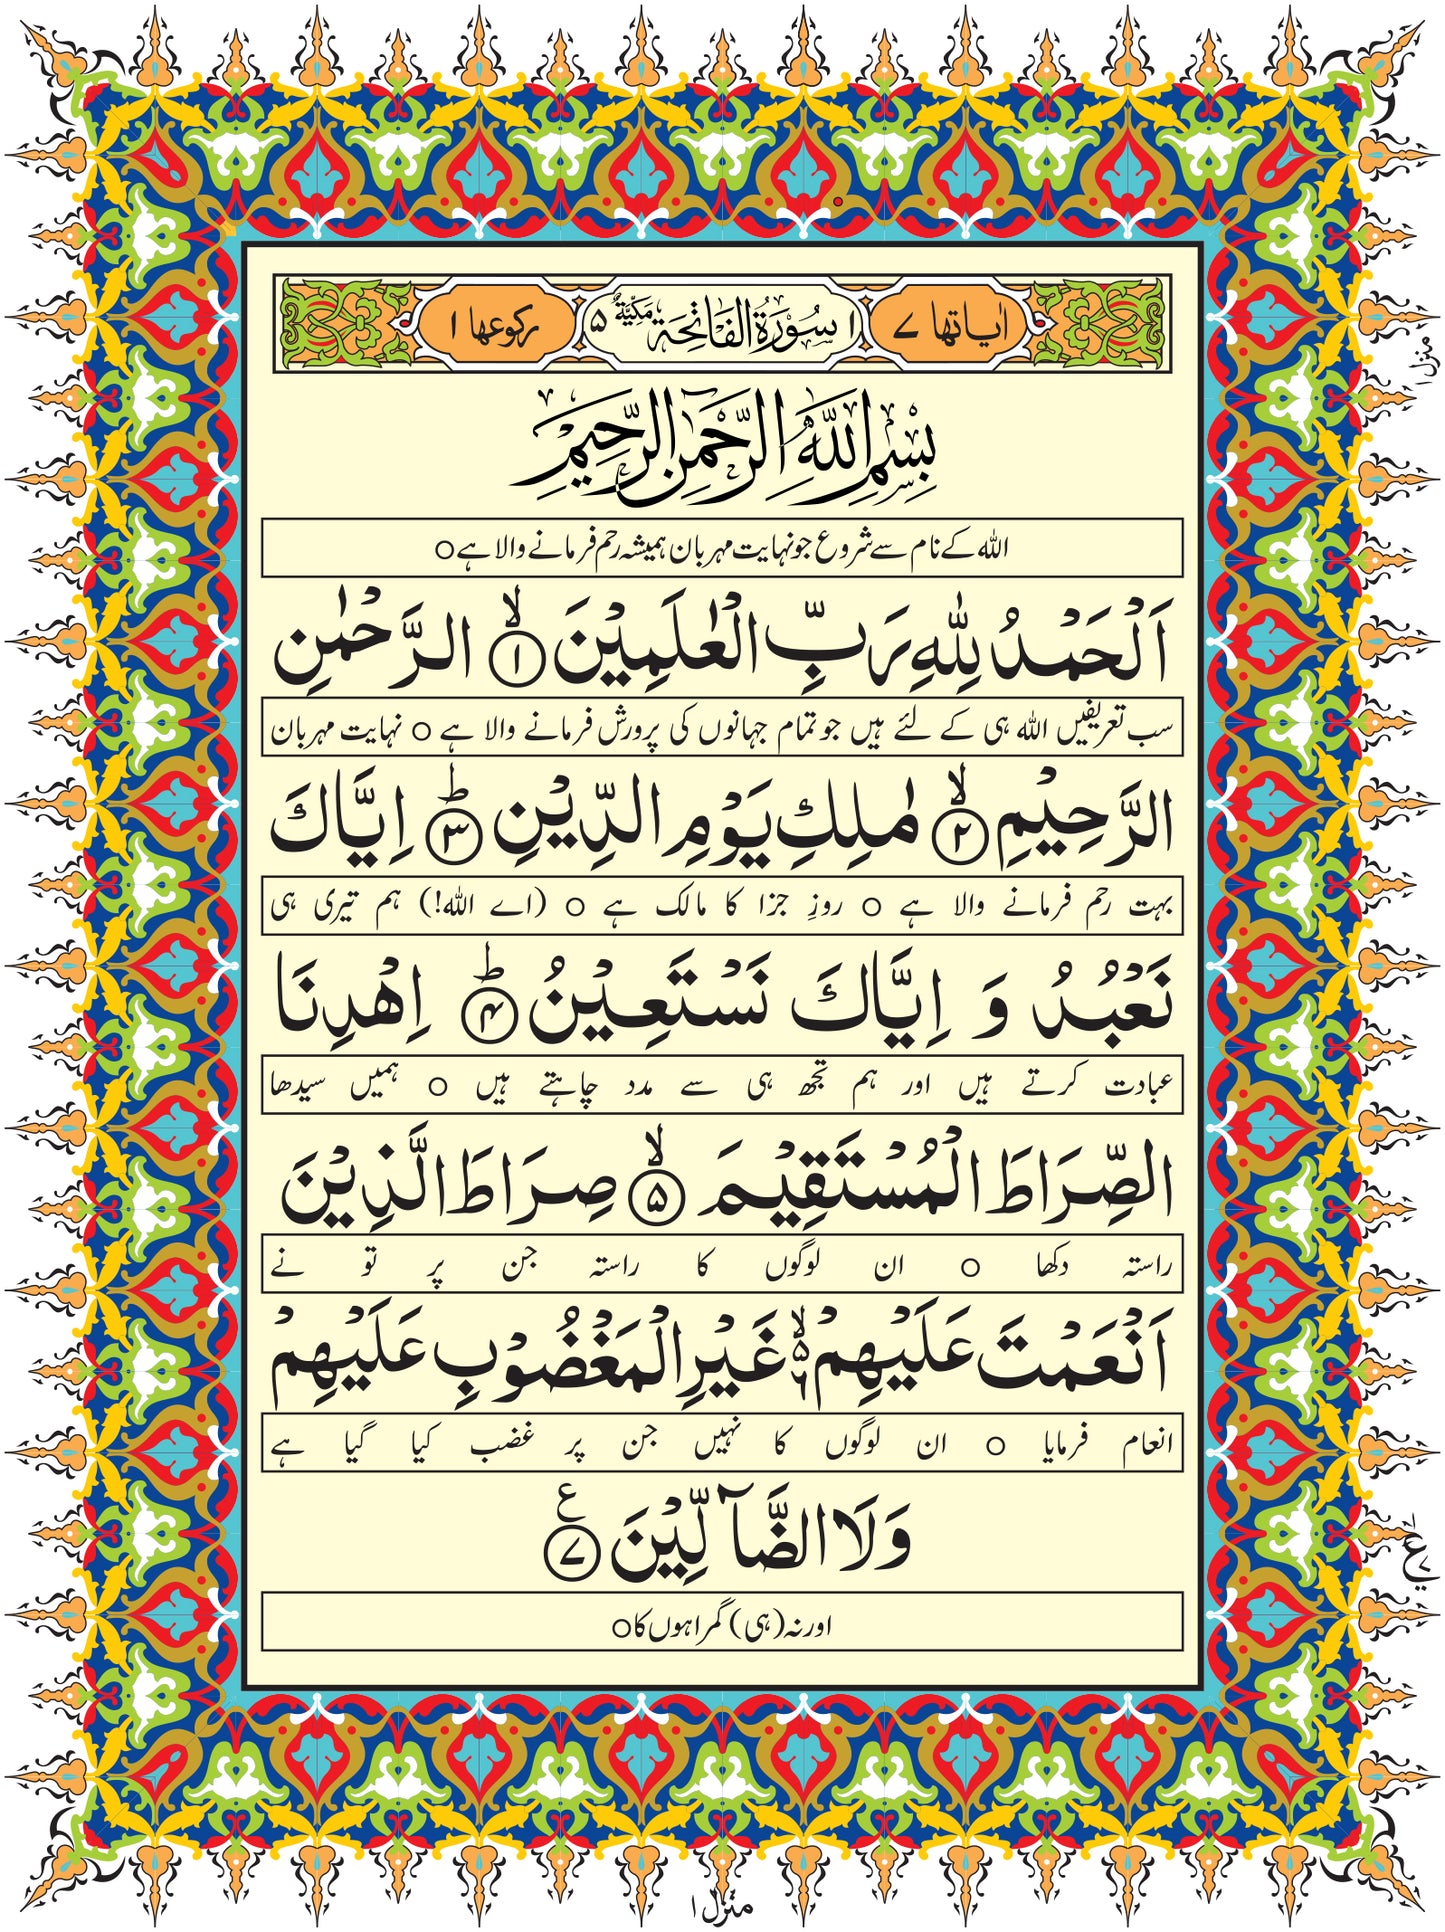 اٰیاتھا ۷ ۱ سُوْرَۃُ الْفَاتِحَۃِ مَکِّیَّۃٌ ۵ رکوعھا ۱
بِسْمِ اللّٰهِ الرَّحْمٰنِ الرَّحِيْمِ
اللہ کے نام سے شروع جو نہایت مہربان ہمیشہ رحم فرمانے والا ہے ○
اَلْحَمْدُ لِلّٰهِ رَبِّ الْعٰلَمِيْنَ ۙ﴿۱﴾ الرَّحْمٰنِ
سب تعریفیں اللہ ہی کے لئے ہیں جو تمام جہانوں کی پرورش فرمانے والا ہے ○ نہایت مہربان
الرَّحِيْمِ ۙ﴿۲﴾ مٰلِكِ يَوْمِ الدِّيْنِ ؕ﴿۳﴾ اِيَّاكَ
بہت رحم فرمانے والا ہے ○ روزِ جزا کا مالک ہے ○ (اے اللہ!) ہم تیری ہی
نَعْبُدُ وَ اِيَّاكَ نَسْتَعِيْنُ ؕ﴿۴﴾ اِهْدِنَا
عبادت کرتے ہیں اور ہم تجھ ہی سے مدد چاہتے ہیں ○ ہمیں سیدھا
الصِّرَاطَ الْمُسْتَقِيْمَ ۙ﴿۵﴾ صِرَاطَ الَّذِيْنَ
راستہ دکھا ○ ان لوگوں کا راستہ جن پر تو نے
اَنْعَمْتَ عَلَيْهِمْ ۙ۵ ۶ غَيْرِ الْمَغْضُوْبِ عَلَيْهِمْ
انعام فرمایا ○ ان لوگوں کا نہیں جن پر غضب کیا گیا ہے
وَلَا الضَّآلِّيْنَ ﴿۷﴾ ع
اور نہ (ہی) گمراہوں کا ○
منزل ۱
منزل ۱